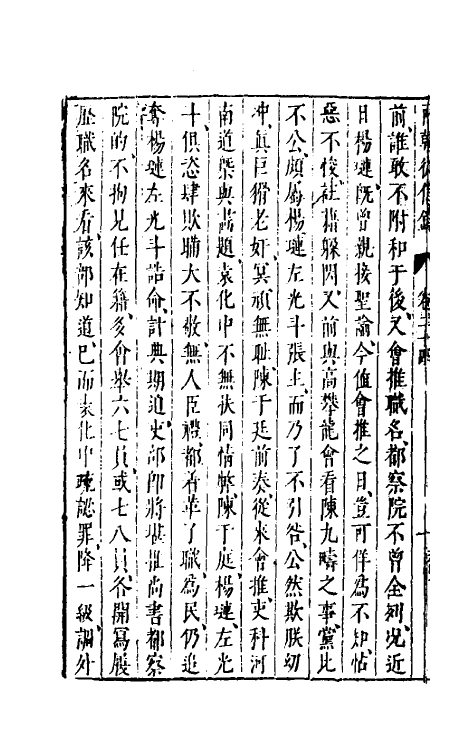 兩朝從信錄 卷二十四
前誰敢不附和于後又會推職名都察院不曾全列况近
日楊漣既曾親接聖諭今值會推之日豈可佯爲不知怙
惡不悛社藉躲閃又前與高攀龍會看陳九疇之事黨比
不公頗屬楊漣左光斗張主而乃了不引咎公然欺朕幼
冲眞巨猾老奸冥頑無耻陳于廷前奏從來會推吏科河
南道槩與畵題袁化中不無扶同情弊陳于庭楊漣左光
斗俱恣肆欺瞞大不敬無人臣禮都着革了職爲民仍追
奪楊漣左光斗誥命計典期迫吏部卽將堪推尚書都察
院的不拘見任在籍多會舉六七員或七八員各開寫履
歷職名來看該部知道已而袁化中疏認罪降一級調外